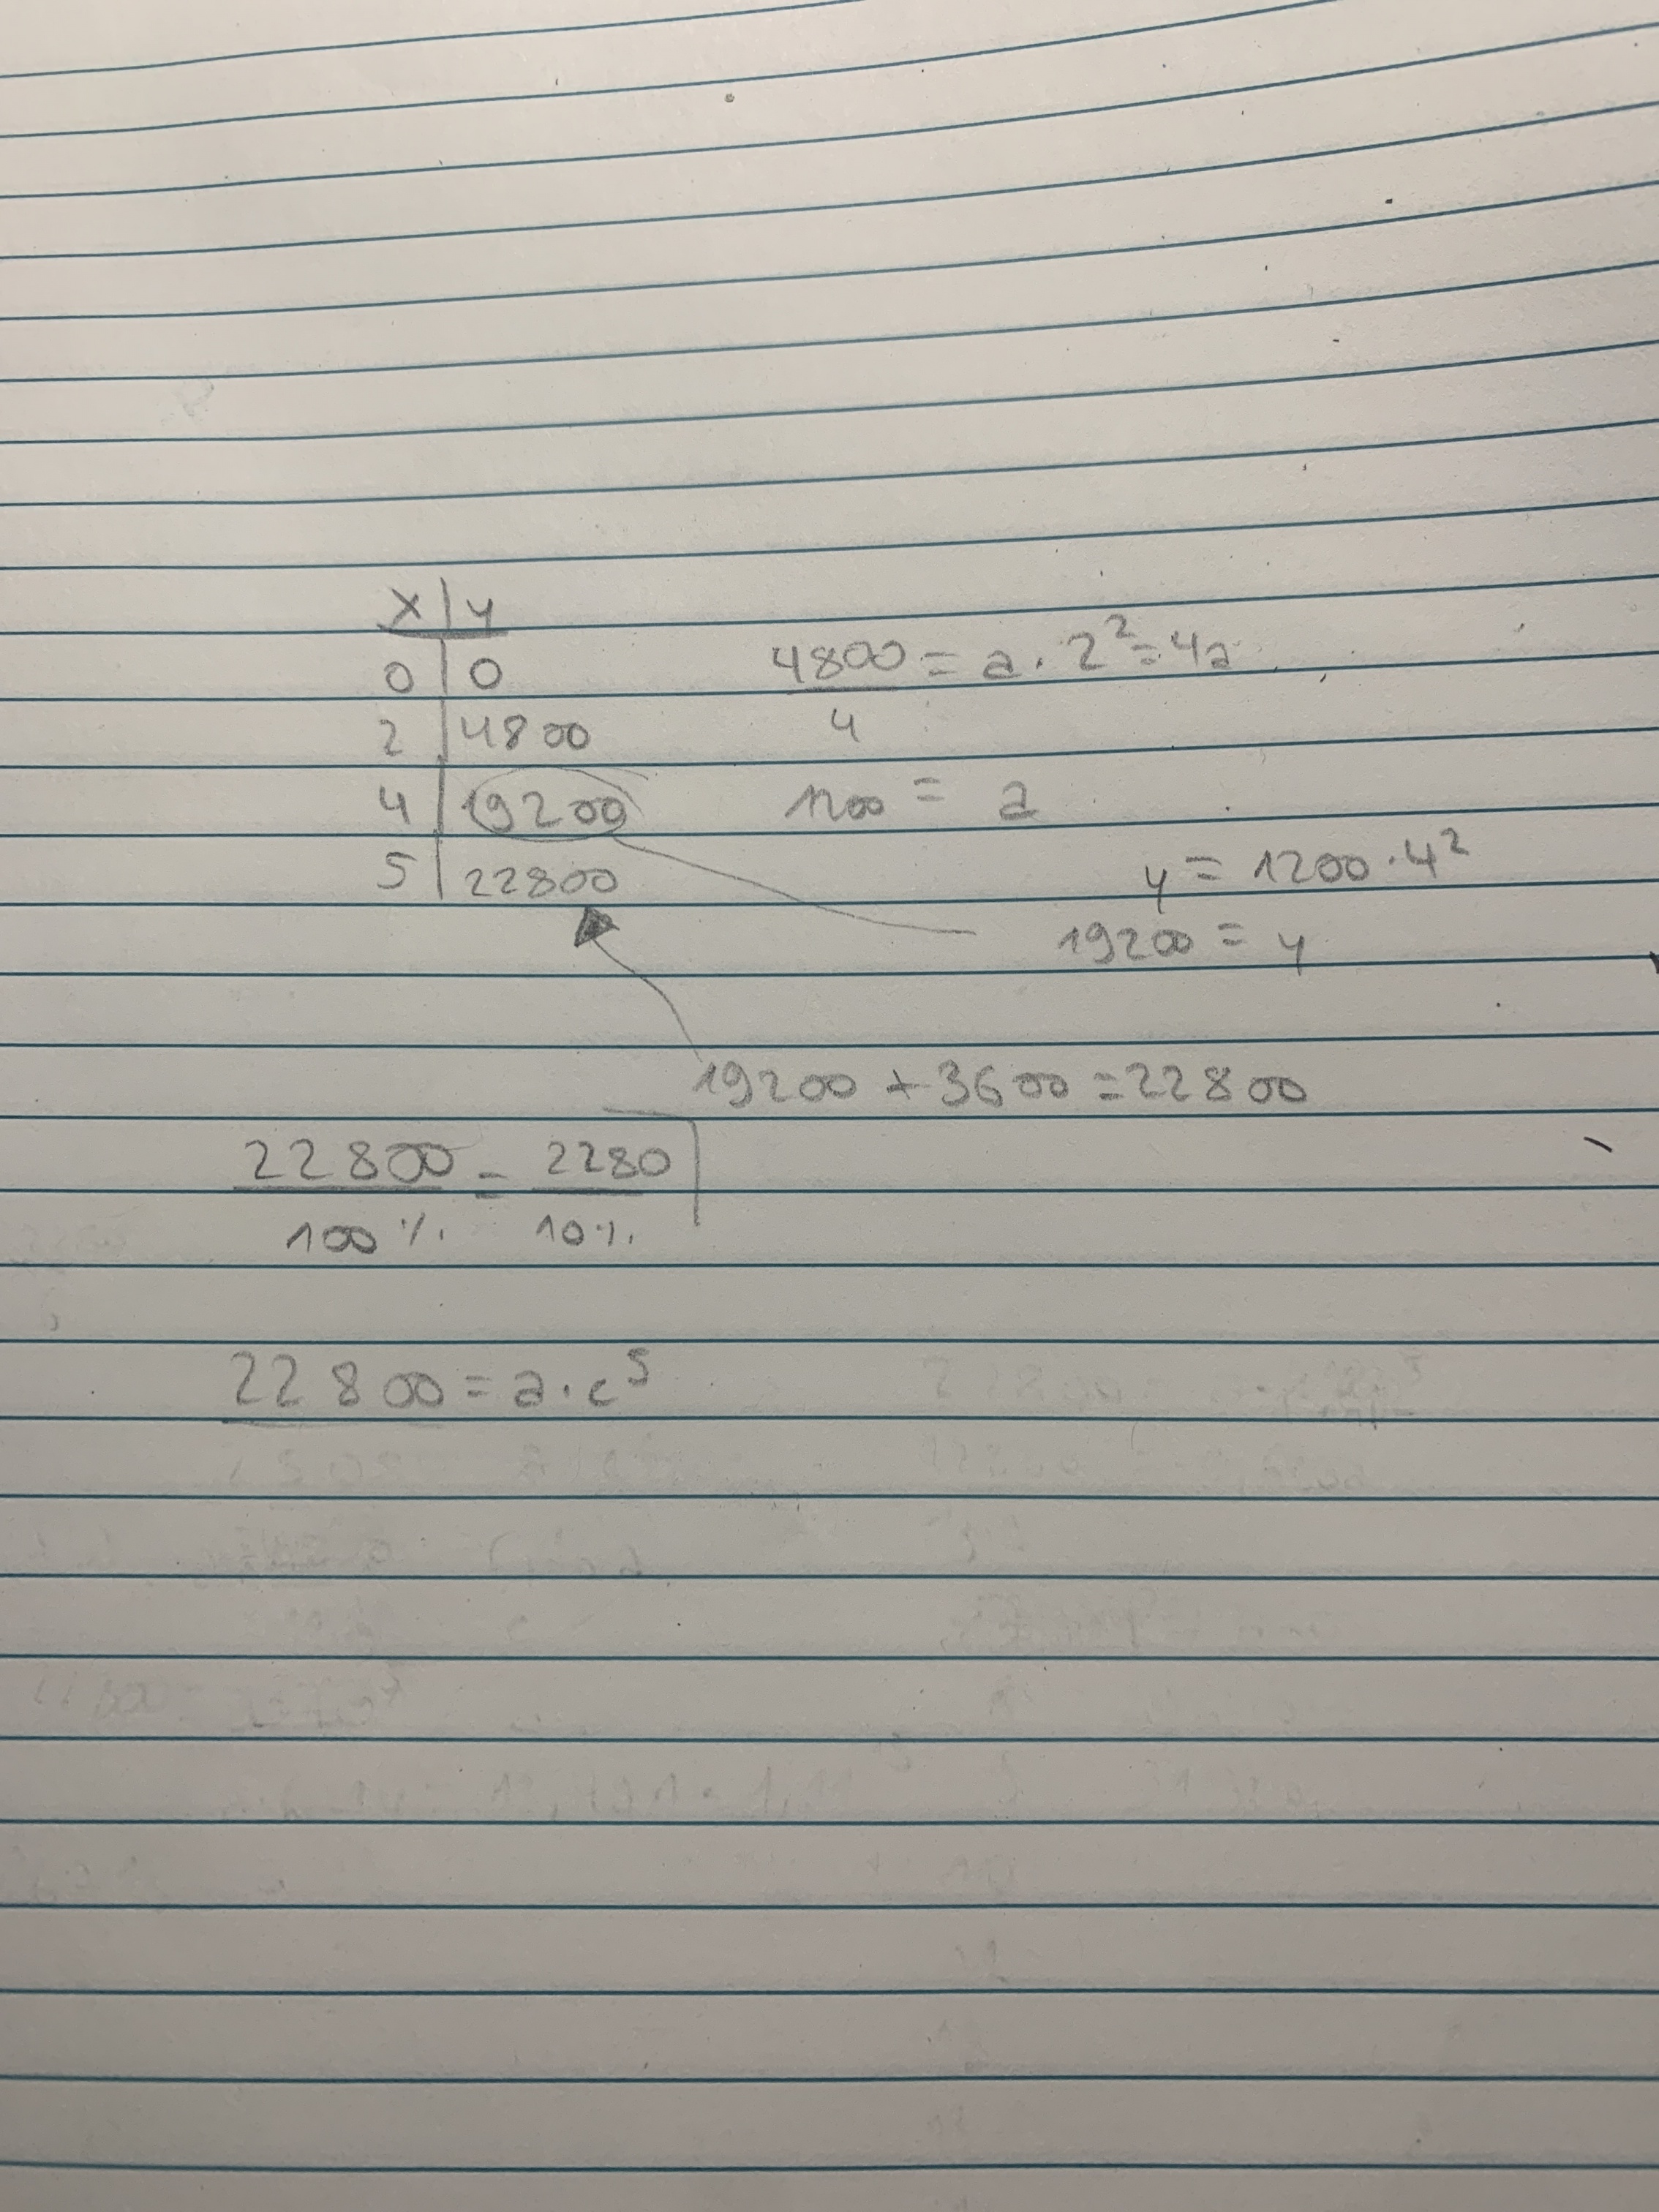 x | y
0 | 0
2 | 4800
4 | 19200
5 | 22800
4800 = a · 2² = 4a
4
1200 = a
y = 1200 · 4²
19200 = y
19200 + 3600 = 22800
22800 = 2280
100% 10%
22800 = a · c⁵